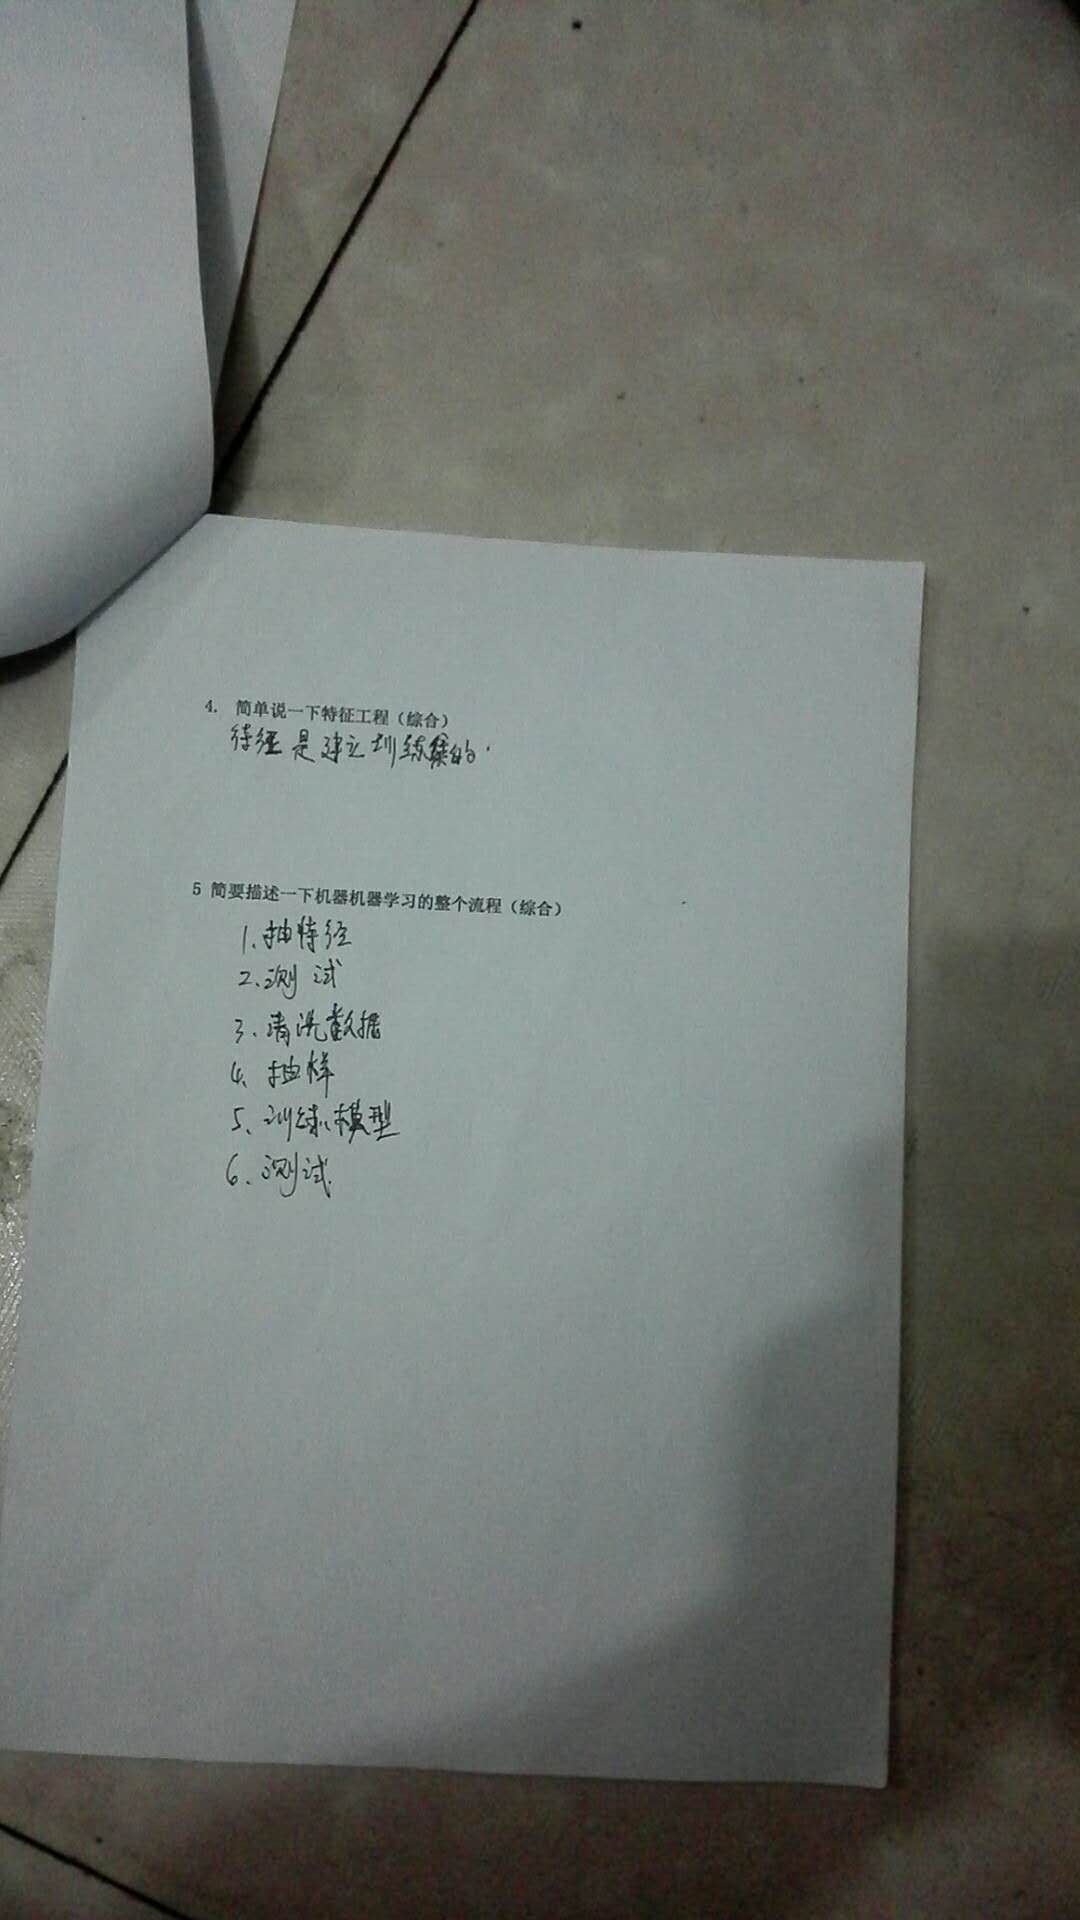 4. 简单说一下特征工程（综合）
待径是建立训练集的.
5 简要描述一下机器机器学习的整个流程（综合）
1、抽特径
2、测试
3、清洗数据
4、抽样
5、训练模型
6、测试.